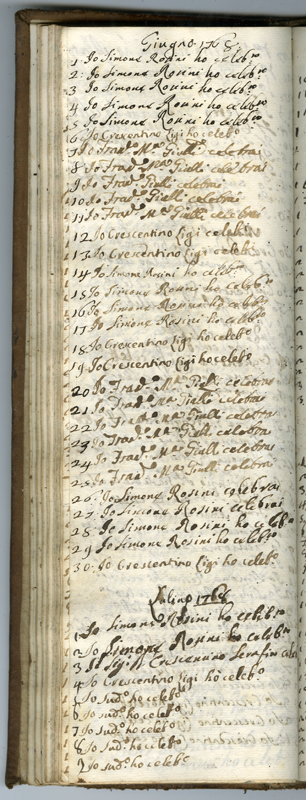 Giugno 1768
1. Io Simone Rosini ho celeb.to
2. Io Simone Rosini ho celeb.to
3 Io Simone Rosini ho celeb.to
4 Io Simone Rosini ho celeb.to
5 Io Simone Rosini ho celeb.to
6 Io Crescentino Ligi ho celeb.o
7 Io Fran.o M.a Gielli celebrai
8 Io Fran.o M.a Gielli celebrai
9 Io Fran.o Gielli celebrai
10 Io Fran.o Gielli celebrai
11 Io Fran.o M.a Gielli celebrai
12 Io Crescentino Ligi celeb.o
13 Io Crescentino Ligi celeb.o
14 Io Simone Rosini ho celeb.to
15 Io Simone Rosini ho celeb.to
16 Io Simone Rosini ho celeb.to
17 Io Simone Rosini ho celeb.to
18 Io Crescentino Ligi ho celeb.o
19 Io Crescentino Ligi ho celeb.o
20 Io Fran.o M.a Gielli celebrai
21 Io Fran.o M.a Gielli celebrai
22 Io Fran.o M.a Gielli celebrai
23 Io Fran.o M.a Gielli celebrai
24 Io Fran.o M.a Gielli celebrai
25 Io Fran.o M.a Gielli celebrai
26 Io Simone Rosini celebrai
27 Io Simone Rosini celebrai
28 Io Simone Rosini ho celeb.to
29 Io Simone Rosini ho celeb.to
30 Io Crescentino Ligi ho celeb.o
1768
1 Io Simone Rosini ho celeb.to
2 Io Simone Rosini ho celeb.to
3 Crescentino Serafini
4 Io Crescentino Ligi ho celeb.o
5 Io sud.o ho celeb.o
6 Io sud.o ho celeb.o
7 Io sud.o ho celeb.o
8 Io sud.o ho celeb.o
9 Io sud.o ho celeb.o